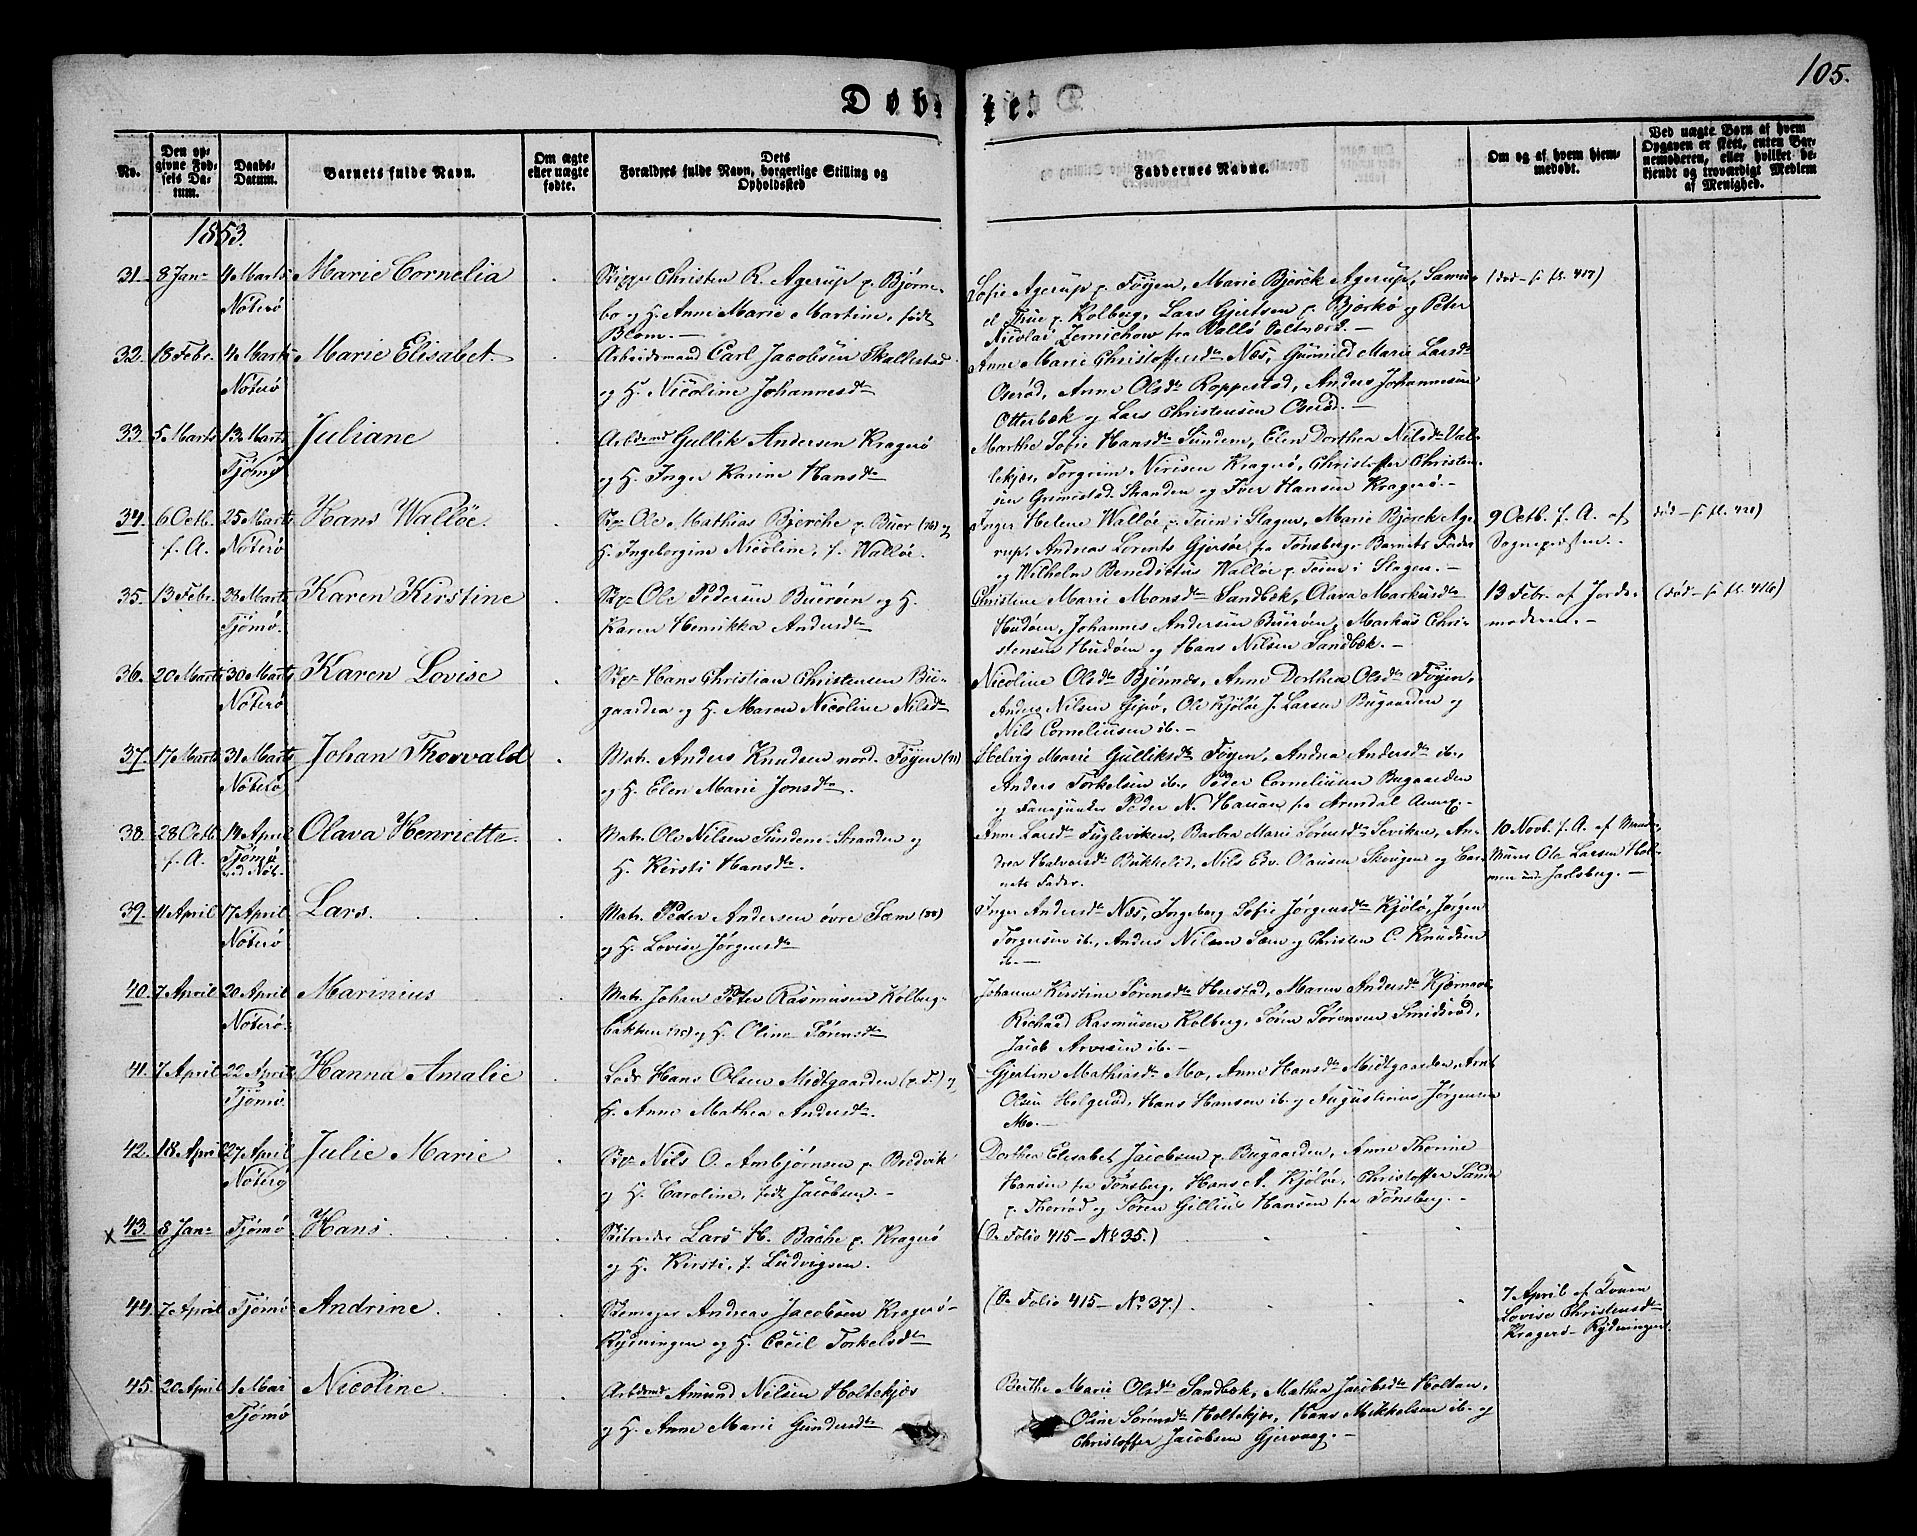 105.
Døbte.
No.
Den opgivne Fødsels Datum.
Daabs-Datum.
Barnets fulde Navn.
Om ægte eller uægte fødte.
Dets Forældres fulde Navn, borgerlige Stilling og Opholdssted
Faddernes Navne.
Om og af hvem hjemmedøbt.
Ved uægte Børn af hvem Opgaven er skeet, enten Barnemoderen, eller hvilket bekjendt og troværdigt Medlem af Menighed.
1853.
31. 8 Jan. 4 Marts Marie Cornelia
Nøterø
Christen R. Agerup p. Bjørnebo
og H. Anne Marie Martine, født
Blom.
Sofie Agerup p. Føyen, Marie Bjerck Agerup, Samuel
True p. Kolberg, Lars Gjertsen p. Bjerkø og Peter
Nicolai Zernichow fra Vallø Saltværk.
(død – s. fl. 417)
32. 18 Febr. 4 Marts Marie Elisabet.
Nøterø
Arbeidsmand Carl Jacobsen Skallestad
og H. Nicoline Johannesdtr
Anne Marie Christoffersdtr Næs, Gunnild Marie Larsdtr
Oserød, Anne Olsdtr Roppestad, Anders Johannessen
Otterbæk og Lars Christensen Oserød.
33. 5 Marts 13 Marts Juliane
Tjømø
Arbdsmd Gullik Andersen Kragerø
og H. Inger Karine Hansdtr
Marthe Sofie Hansdtr Sundene, Elen Dorthea Nilsdtr Vallekjær,
Torgrim Nirisen Kragerø, Christoffer Christensen
Grimestad Stranden og Iver Hansen Kragerø.
34. 6 Octb. 25 Marts Hans Walløe.
f. A. Nøterø
Ole Mathias Bjercke p. Buer (76) og
H. Ingeborgine Nicoline, f. Walløe.
Inger Helene Walløe p. Teien i Slagen, Marie Bjerck Agerup,
Andreas Lorents Gjersøe fra Tønsberg, Barnets Fader
og Wilhelm Benedictus Walløe p. Teien i Slagen.
9 Octb. f. A. af
Sognepresten.
død – s. fl. 421)
35. 13 Febr. 28 Marts Karen Kirstine
Tjømø.
Ole Pedersen Buerøen og H.
Karen Henrikka Andersdtr
Christine Marie Monsdtr Sandbæk, Olava Markusdtr
Hudøen, Johannes Andersen Buerøen, Markus Christensen
Hudøen og Hans Nilsen Sandbæk.
13 Febr. af Jordemoderen.
(død – s. fl. 416)
36. 20 Marts 30 Marts Karen Lovise
Nøterø
Hans Christian Christensen Bugaarden
og H. Maren Nicoline Nilsdtr
Nicoline Olsdtr Bjønnes, Anne Dorthea Olsdtr Føyen,
Anders Nilsen Gipø, Ole Kjøløe J. Larsen Bugaarden og
Nils Corneliussen ib.
37. 17 Marts 31 Marts Johan Thorvald
Nøterø
Matr. Anders Knudsen nord. Føyen (21)
og H. Elen Marie Jonsdtr.
Helvig Marie Gulliksdtr Føyen, Andrea Andersdtr ib.
Anders Torkelsen ib., Peder Corneliussen Bugaarden
og Fanejunker Peder N. Hausan fra Arendal Annex.
38. 28 Octb. 14 April Olava Henriette.
f. A. Tjømø
Matr. Ole Nilsen Sundene Stranden og
H. Kirsti Hansdtr
Anne Larsdtr Fugleviken, Barbra Marie Sørensdtr Seviken, Andrea
Halvorsdtr Bukkelid, Nils Edv. Olausen Skougen og Barnets
Fader.
10 Novb. f. A. af
Ole Larsen Holmen
und. Jarlsberg.
39. 11 April 17 April Lars.
Nøterø
Matr. Peder Andersen øvre Sæm (88)
og H. Lovise Jørgensdtr
Inger Andersdtr Næs, Ingeborg Sofie Jørgensdtr Kjøløe, Jørgen
Torgersen ib., Anders Nilsen Sæm og Christen C. Knudsen
ib.
40. 7 April 20 April Marinius
Nøterø.
Matr. Johan Peter Rasmusen Kolbergbakken
(15) og H. Oline Sørensdtr
Johanne Kirstine Sørensdtr Herstad, Maren Andersdtr Kjærnaas,
Richard Rasmusen Kolberg, Søren Sørensen Smidsrød,
Jacob Arvesen ib.
41. 7 April 22 April Hanna Amalie
Tjømø.
Lods Hans Olsen Midtgaarden (p. T.) og
H. Anne Mathea Andersdtr.
Gjertine Mathiasdtr Mo, Anne Hansdtr Midtgaarden, Arnt
Olsen Holgerød, Hans Hansen ib. og Augustinus Jørgensen
Mo.
42. 18 April 27 April Julie Marie
Nøterø
Nils O. Ambjørnsen p. Bredvik
og H. Caroline, født Jacobsen.
Dorthea Elisabet Jacobsen p. Bugaarden, Anne Thorine
Hansen fra Tønsberg, Hans A. Kjøløe, Christoffer Sande
p. Therød og Søren Gillius Hansen fra Tønsberg.
x 43. 8 Jan. Tjømø Hans.
Lars H. Bache p. Kragerø
og H. Kirsti, f. Ludvigsen.
(Se Folio 415 – No 35.)
44. 7 April Tjømø Andrine.
Andreas Jacobsen Kragerø-
Rydningen og H. Cecil Torkelsdtr
(Se Folio 415 – No 37.)
7 April af Konen
Lovise Christensdtr
Kragerø-Rydningen.
45. 20 April 1 Mai Nicoline
Tjømø
Arbdsmd Amund Nilsen Holtekjær
og H. Anne Marie Gundersdtr
Berthe Marie Olsdtr Sandbæk, Mathea Jacobsdtr Holtan,
Oline Sørensdtr Holtekjær, Hans Mikkelsen ib. og
Christoffer Jacobsen Gjervaag.